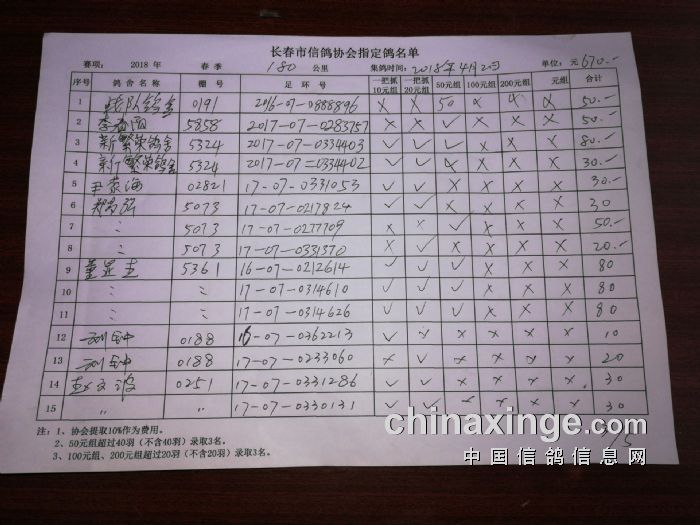 长春市信鸽协会指定鸽名单
赛项: 2018 年 春 季 180 公里 集鸽时间: 2018年4月2日 单位: 元 670.-
序号 鸽舍名称 棚号 足环号 一把抓10元组 一把抓20元组 50元组 100元组 200元组 元组 合计
1 战队鸽舍 0191 2016-07-0888896 X X 50 X X X 50.-
2 5858 2017-07-0283757 X X ✓ X X X 50.-
3 新繁荣鸽舍 5324 2017-07-0334403 ✓ ✓ ✓ X X X 80.-
4 新繁荣鸽舍 5324 2017-07-0334402 ✓ ✓ X X X X 30.-
5 尹景海 02821 17-07-0331053 ✓ ✓ X X X X 30.-
6 5073 17-07-0217824 ✓ ✓ X X X X 30
7 〃 5073 17-07-0277709 X X ✓ X X X 50.-
8 〃 5073 17-07-0331370 X ✓ X X X X 20.-
9 董显圭 5361 16-07-0212614 ✓ ✓ ✓ X X X 80
10 〃 〃 17-07-0314610 ✓ ✓ ✓ X X X 80
11 〃 〃 17-07-0314626 ✓ ✓ ✓ X X X 80
12 刘钟 0188 16-07-0362213 ✓ X X X X X 10
13 刘钟 0188 17-07-0233060 X ✓ X X X X 20
14 赵文波 0251 17-07-0331286 ✓ ✓ X X X X 30
15 〃 〃 17-07-0330131 ✓ ✓ X X X X 30
注: 1、协会提取10%作为费用。
2、50元组超过40羽（不含40羽）录取3名。
3、100元组、200元组超过20羽（不含20羽）录取3名。
chinaxinge.com
中国信鸽信息网